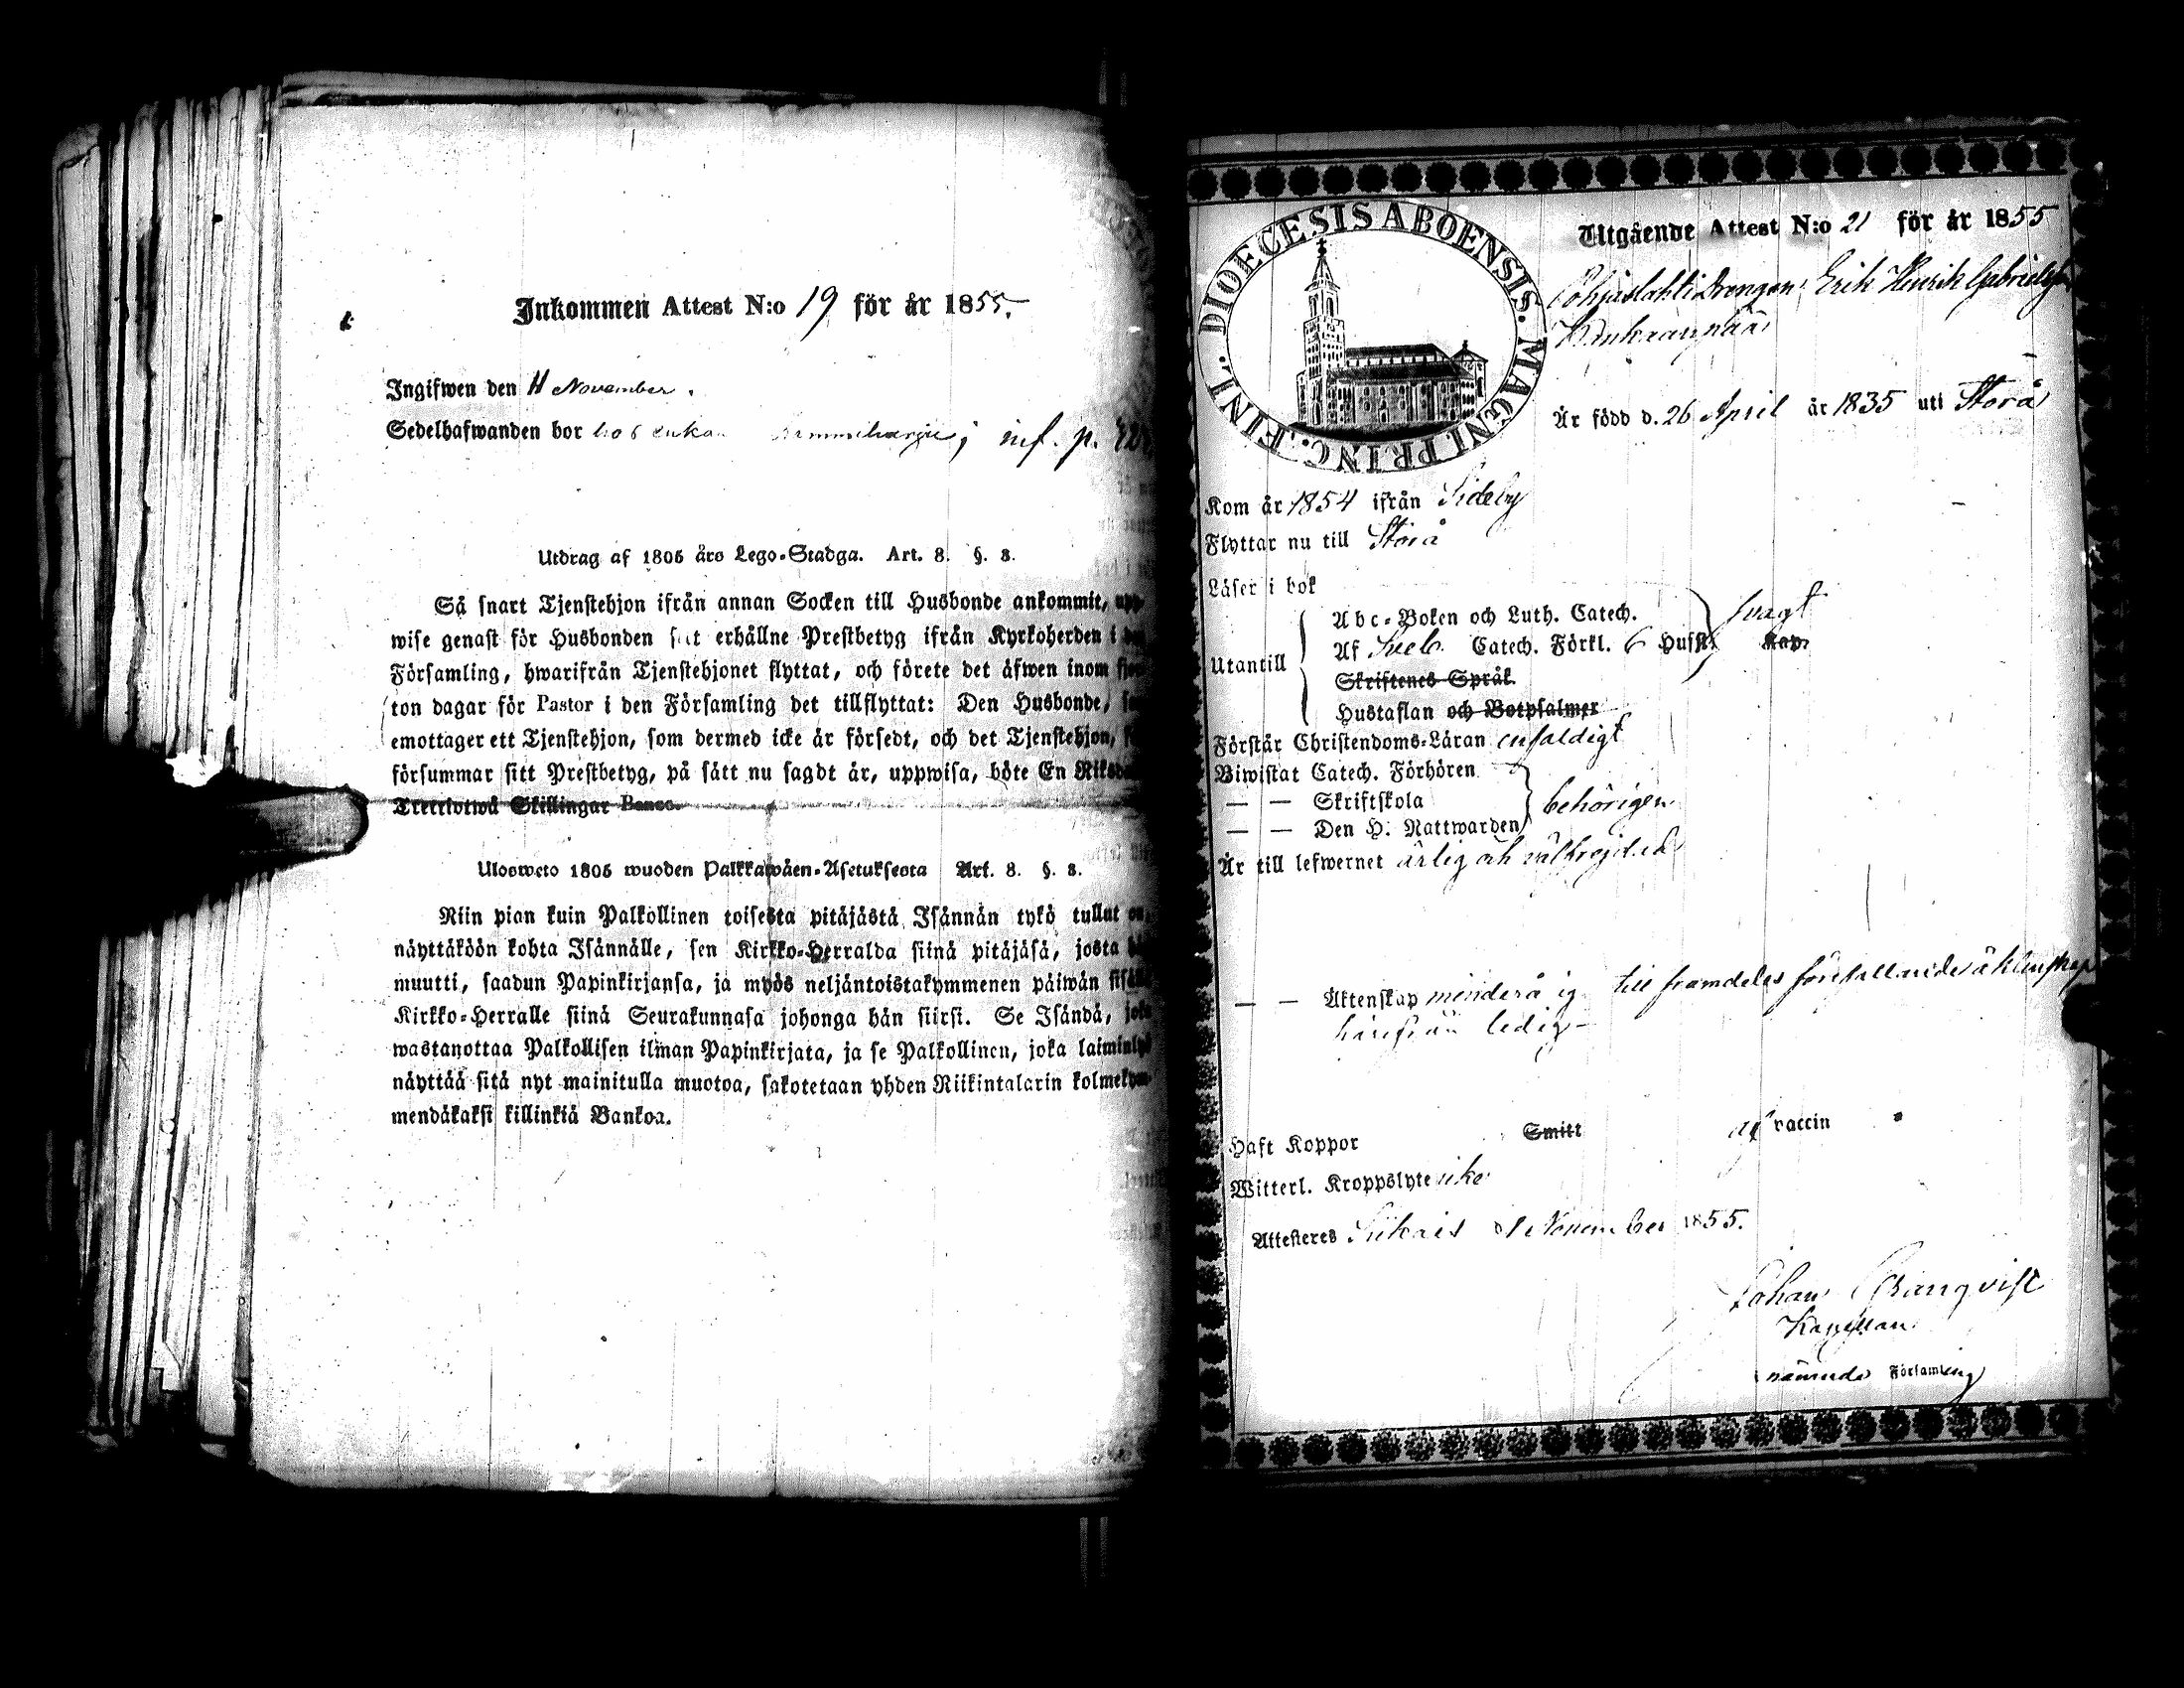 Inkommen Attest N:o 19 för år 1855.
Ingifwen den 11 November.
Sedelhafwanden bor hos enkan inf. p.
Utdrag af 1805 års Lego-Stadga. Art. 8. §. 8.
Så snart Tjenstehjon ifrån annan Socken till Husbonde ankommit, upp-
wise genast för Husbonden sitt erhållne Prestbetyg ifrån Kyrkoherden i
Församling, hwarifrån Tjenstehjonet flyttat, och förete det äfwen inom fjor-
ton dagar för Pastor i den Församling det tillflyttat: Den Husbonde,
emottager ett Tjenstehjon, som dermed icke är försedt, och det Tjenstehjon,
försummar sitt Prestbetyg, på sätt nu sagdt är, uppwisa, böte En Riksd
Trettiotwå Skillingar Banco.
Ulosweto 1805 wuoden Palkkawäen-Asetuksesta Art. 8. §. 8.
Niin pian kuin Palkollinen toisesta pitäjästä Isännän tykö tullut on,
näyttäköön kohta Isännälle, sen Kirkko-Herralda siinä pitäjäsä, josta
muutti, saadun Papinkirjansa, ja myös neljäntoistakymmenen päiwän
Kirkko-Herralle siinä Seurakunnasa johonga hän siirsi. Se Isändä, joka
wastanottaa Palkollisen ilman Papinkirjata, ja se Palkollinen, joka laiminlyö
näyttää sitä nyt mainitulla muotoa, sakotetaan yhden Riikintalarin kolmekym-
mendäkaksi killinkiä Bankoa.
DIOECESIS ABOENSIS. MAGNI. PRINC. FINL.
Utgående Attest N:o 21 för år 1855
Pohjaslahti Drengen Erik Henrik Gabrielsson
Är född d. 26 April år 1835 uti Storå
Kom år 1854 ifrån Sideby
Flyttar nu till Storå
Läser i bok
Abc-Boken och Luth. Catech. svagt
Utantill Af Sveb. Catech. Förkl. 6 Hufst. Kap.
Skriftenes Språk.
Hustaflan och Botpsalmer
Förstår Christendoms-Läran enfaldigt
Biwistat Catech. Förhören
— — Skriftskola behörigen
— — Den H. Nattwarden
Är till lefwernet ärlig och välfrejdad
— — Äktenskap minderårig till framdeles förefallande äktenskap
härifrån ledig
Haft Koppor Smitt af vaccin
Witterl. Kroppslyte icke
Attesteres November 1855.
Johan
Kapellan
nämnde Församling